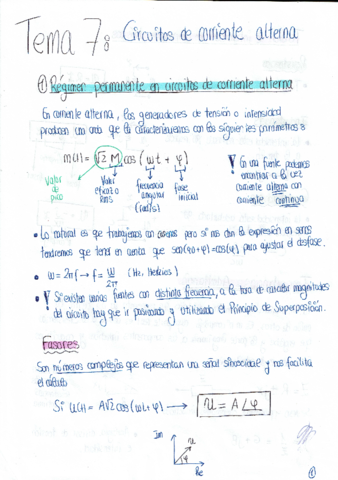 Tema 7: Circuitos de corriente alterna
① Régimen permanente en circuitos de corriente alterna
En corriente alterna, los generadores de tensión o intensidad
producen una onda que la caracterizamos con los siguientes parámetros:
m(t) = √2 M cos(ωt + φ)
Valor de pico
Valor eficaz o rms
frecuencia angular (rad/s)
fase inicial
En una fuente podemos
encontrar a la vez
corriente alterna con
corriente continua
• Lo natural es que trabajemos con cosenos pero si nos dan la expresión en senos
tendremos que tener en cuenta que sen(90+φ)=cos(φ) para ajustar el desfase.
• ω = 2πf → f = ω/2π (Hz, Hercios)
• Si existen varias fuentes con distinta frecuencia, a la hora de calcular magnitudes
del circuito hay que ir pasivando y utilizando el Principio de Superposición.
Fasores
Son números complejos que representan una señal sinusoidal y nos facilita
el cálculo
Si u(t) = A√2 cos(ωt+φ) → U = A∠φ
Im
u
φ
Re
①